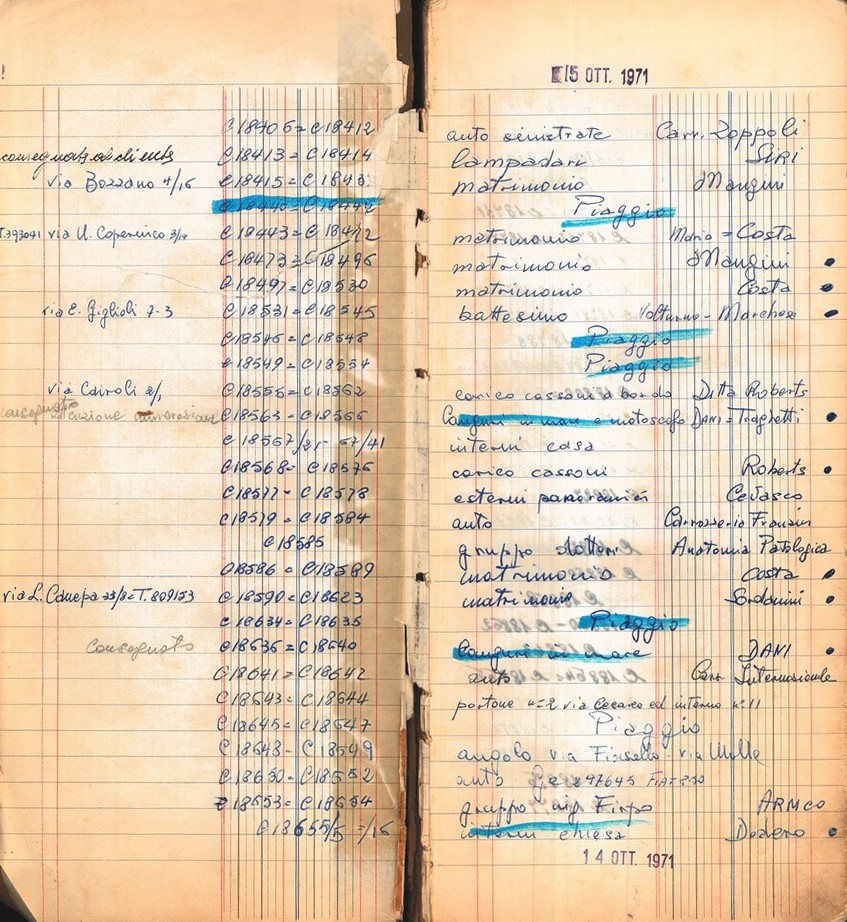 15 OTT. 1971
C18406 = C18412 auto sinistrate Carr. Zoppoli
consegnata al cliente C18413 = C18414 lampadari SIRI
via Bozzano 4/16 C18415 = matrimonio Mangini
Piaggio
T.393041 via U. Copernico 3/ C18443 = matrimonio Mario = Costa
C18473 = C18496 matrimonio Mangini •
C18497 = C18530 matrimonio Costa •
via E. Giglioli 7-3 C18531 = C18545 battesimo Volturno - Marchese •
C18546 = C18548 Piaggio
C18549 = C18554 Piaggio
via Cairoli C18555 = C18562 carico cassoni a bordo Ditta Roberts
consegnato C18563 = C18566 Canguri in mare e motoscafo DANI = Traghetti •
C18567/ - 67/41 interni casa
C18568 = C18576 carico cassoni Roberts •
C18577 = C18578 esterni panoramici Cevasco
C18579 = C18584 auto Carrozzeria
C18585 gruppo dottori Anatomia Patologica
C18586 = C18589 matrimonio Costa •
via L. Canepa 23/ = T. 809153 C18590 = C18623 matrimonio •
C18634 = C18635 Piaggio
Consegnato C18636 = C18640 Canguri in mare DANI •
C18641 = C18642 auto Carr Internazionale
C18643 = C18644 portone n=2 via ed interno n. 11
C18645 = C18647 Piaggio
C18648 - angolo via - via
auto
C18653 = C18654 gruppo Firpo ARMCO
C18655/5 = /16 interni chiesa Dodero •
14 OTT. 1971